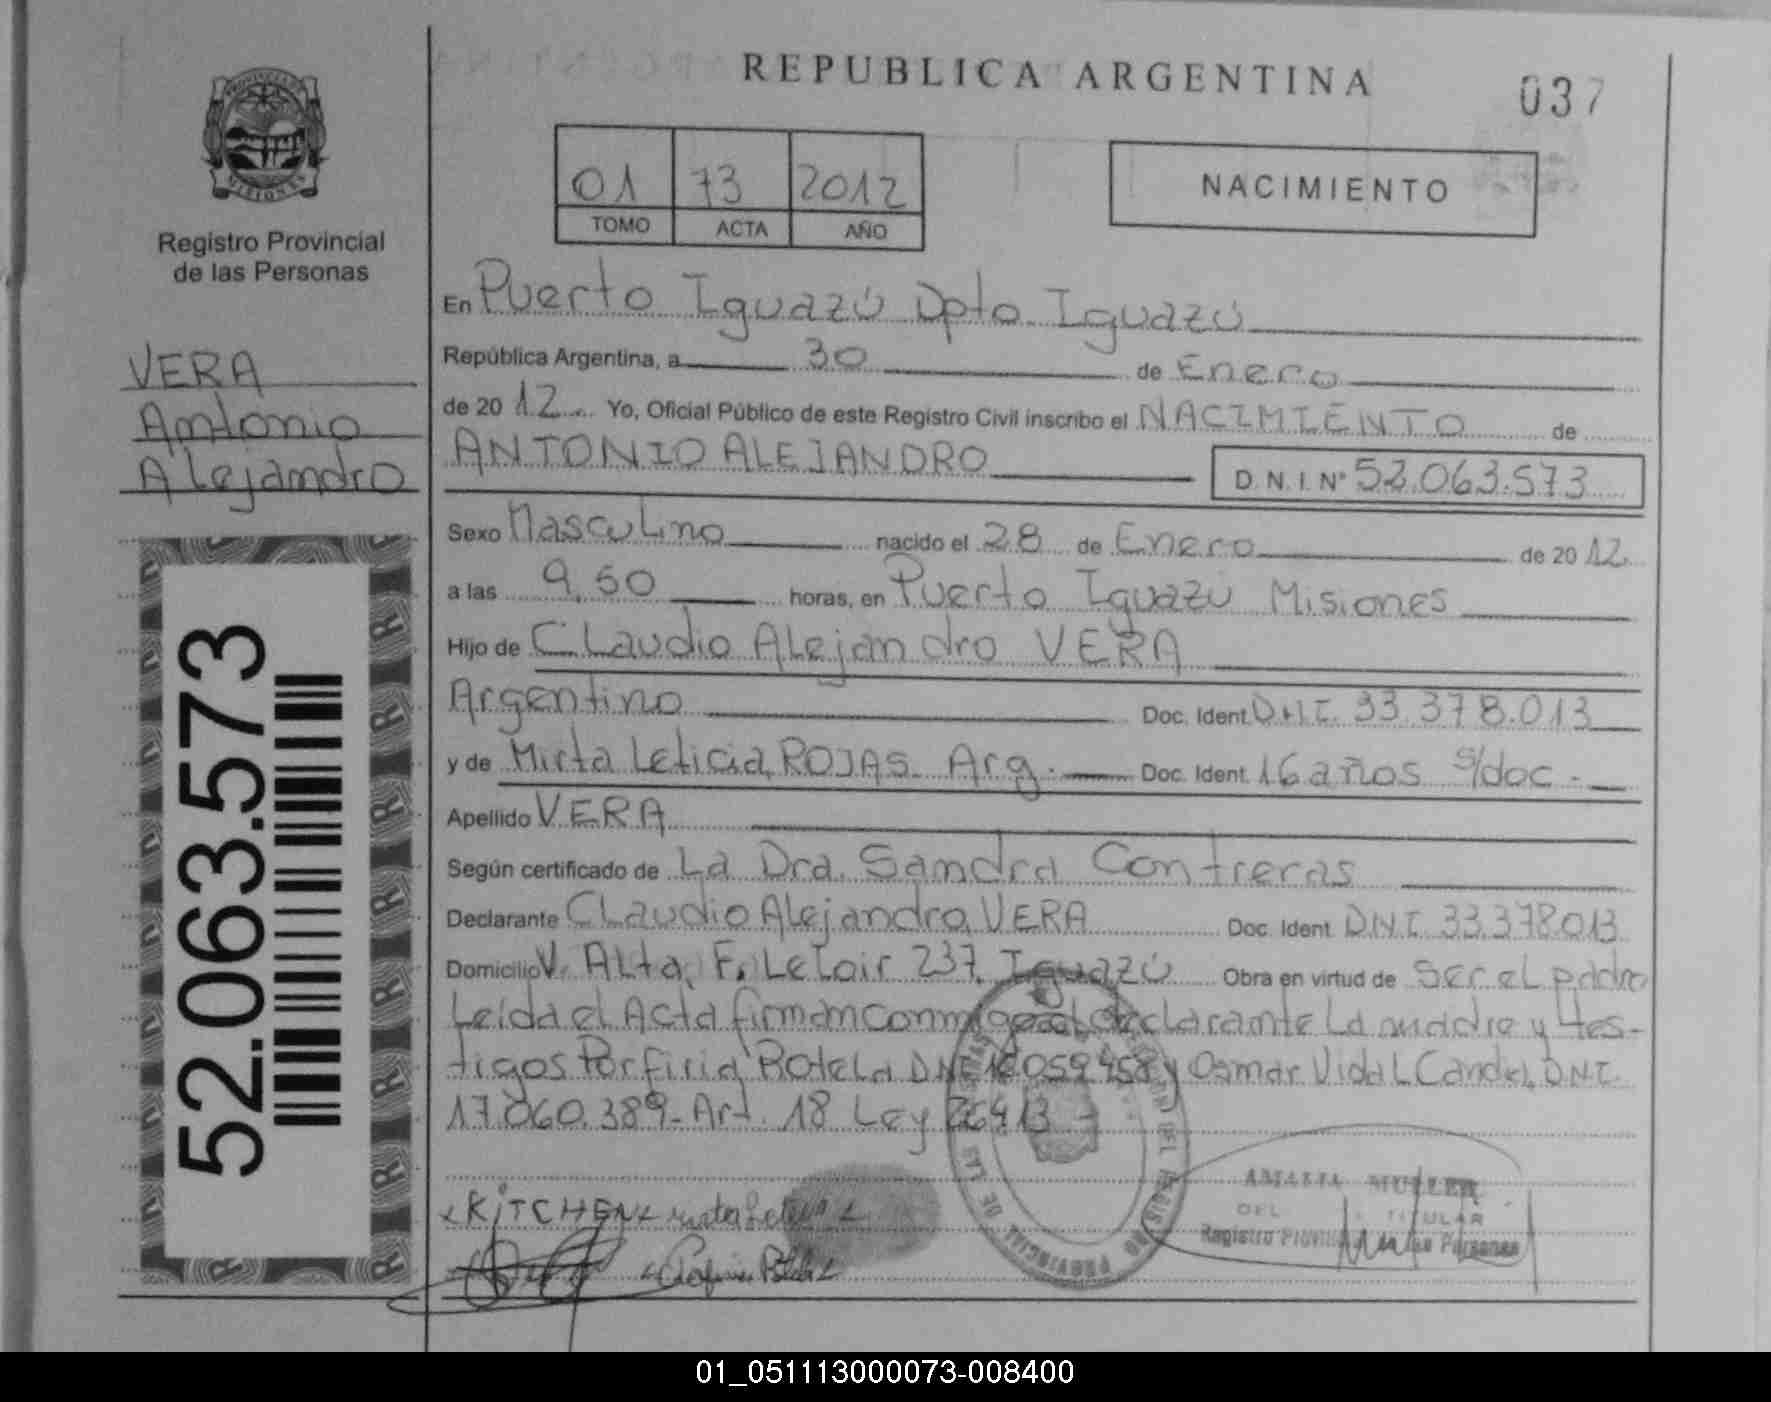 REPUBLICA ARGENTINA
037
PROVINCIA DE
MISIONES
Registro Provincial
de las Personas
01 73 2012
TOMO ACTA AÑO
NACIMIENTO
VERA
Antonio
Alejandro
52.063.573
En Puerto Iguazú Dpto Iguazú
República Argentina, a 30 de Enero
de 2012 Yo, Oficial Público de este Registro Civil inscribo el NACIMIENTO de
ANTONIO ALEJANDRO D.N.I. N° 52.063.573
Sexo Masculino nacido el 28 de Enero de 2012
a las 9,50 horas, en Puerto Iguazú Misiones
Hijo de Claudio Alejandro VERA
Argentino Doc. Ident. D.N.I. 33.378.013
y de Mirta Leticia ROJAS Arg. Doc. Ident. 16 años s/doc.
Apellido VERA
Según certificado de La Dra. Sandra Contreras
Declarante Claudio Alejandro VERA Doc. Ident. D.N.I. 33.378.013
Domicilio V. Alta, F. Leloir 237 Iguazú Obra en virtud de Ser el padre
Leida el Acta firman conmigo el declarante La madre y tes-
tigos Porfiria Rotela DNI y Osmar Vidal Candel, D.N.I.
17.060.389- Art. 18 Ley 26413 -
KITCHEN
AMALIA MULLER
DEL TITULAR
Registro Provincial de las Personas
01_051113000073-008400